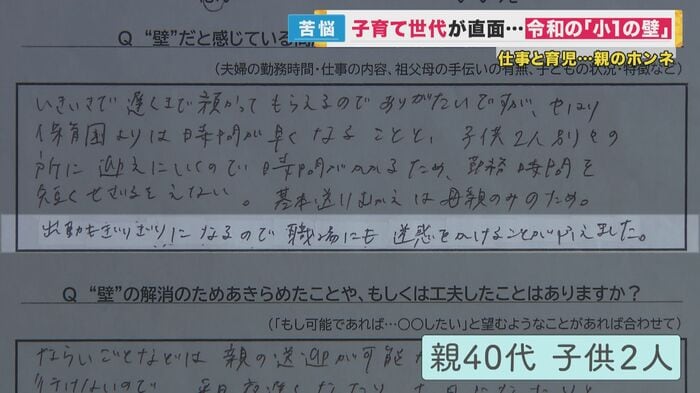 苦悩 子育て世代が直面…令和の「小1の壁」
仕事と育児…親のホンネ
Q “壁”だと感じている
(夫婦の勤務時間・仕事の内容、祖父母の手伝いの有無、子どもの状況・特徴など)
いきいきで遅くまで預かってもらえるのでありがたいですが、やはり
保育園よりは時間が早くなることと、子供2人別々の
所に迎えにいくので時間がかかるため、勤務時間を
短くせざるをえない。基本送りむかえは母親のみのため。
出勤もぎりぎりになるので職場にも迷惑をかけることがふえました。
Q “壁”の解消のためあきらめたことや、もしくは工夫したことはありますか?
(「もし可能であれば…〇〇したい」と望むようなことがあれば合わせて)
ならいごとなどは親の送迎が可能
行けないので
親40代 子供2人